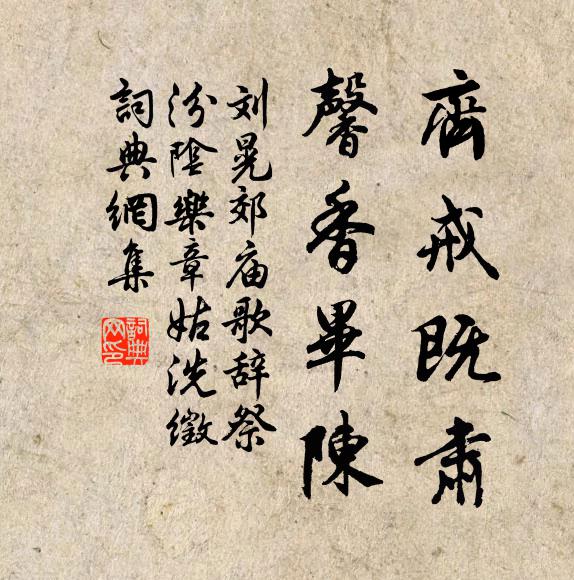 齊戒既肅
馨香畢陳
刘晃郊庙歌辞祭
汾陰樂章姑洗徵
詞典網集
詞典網印